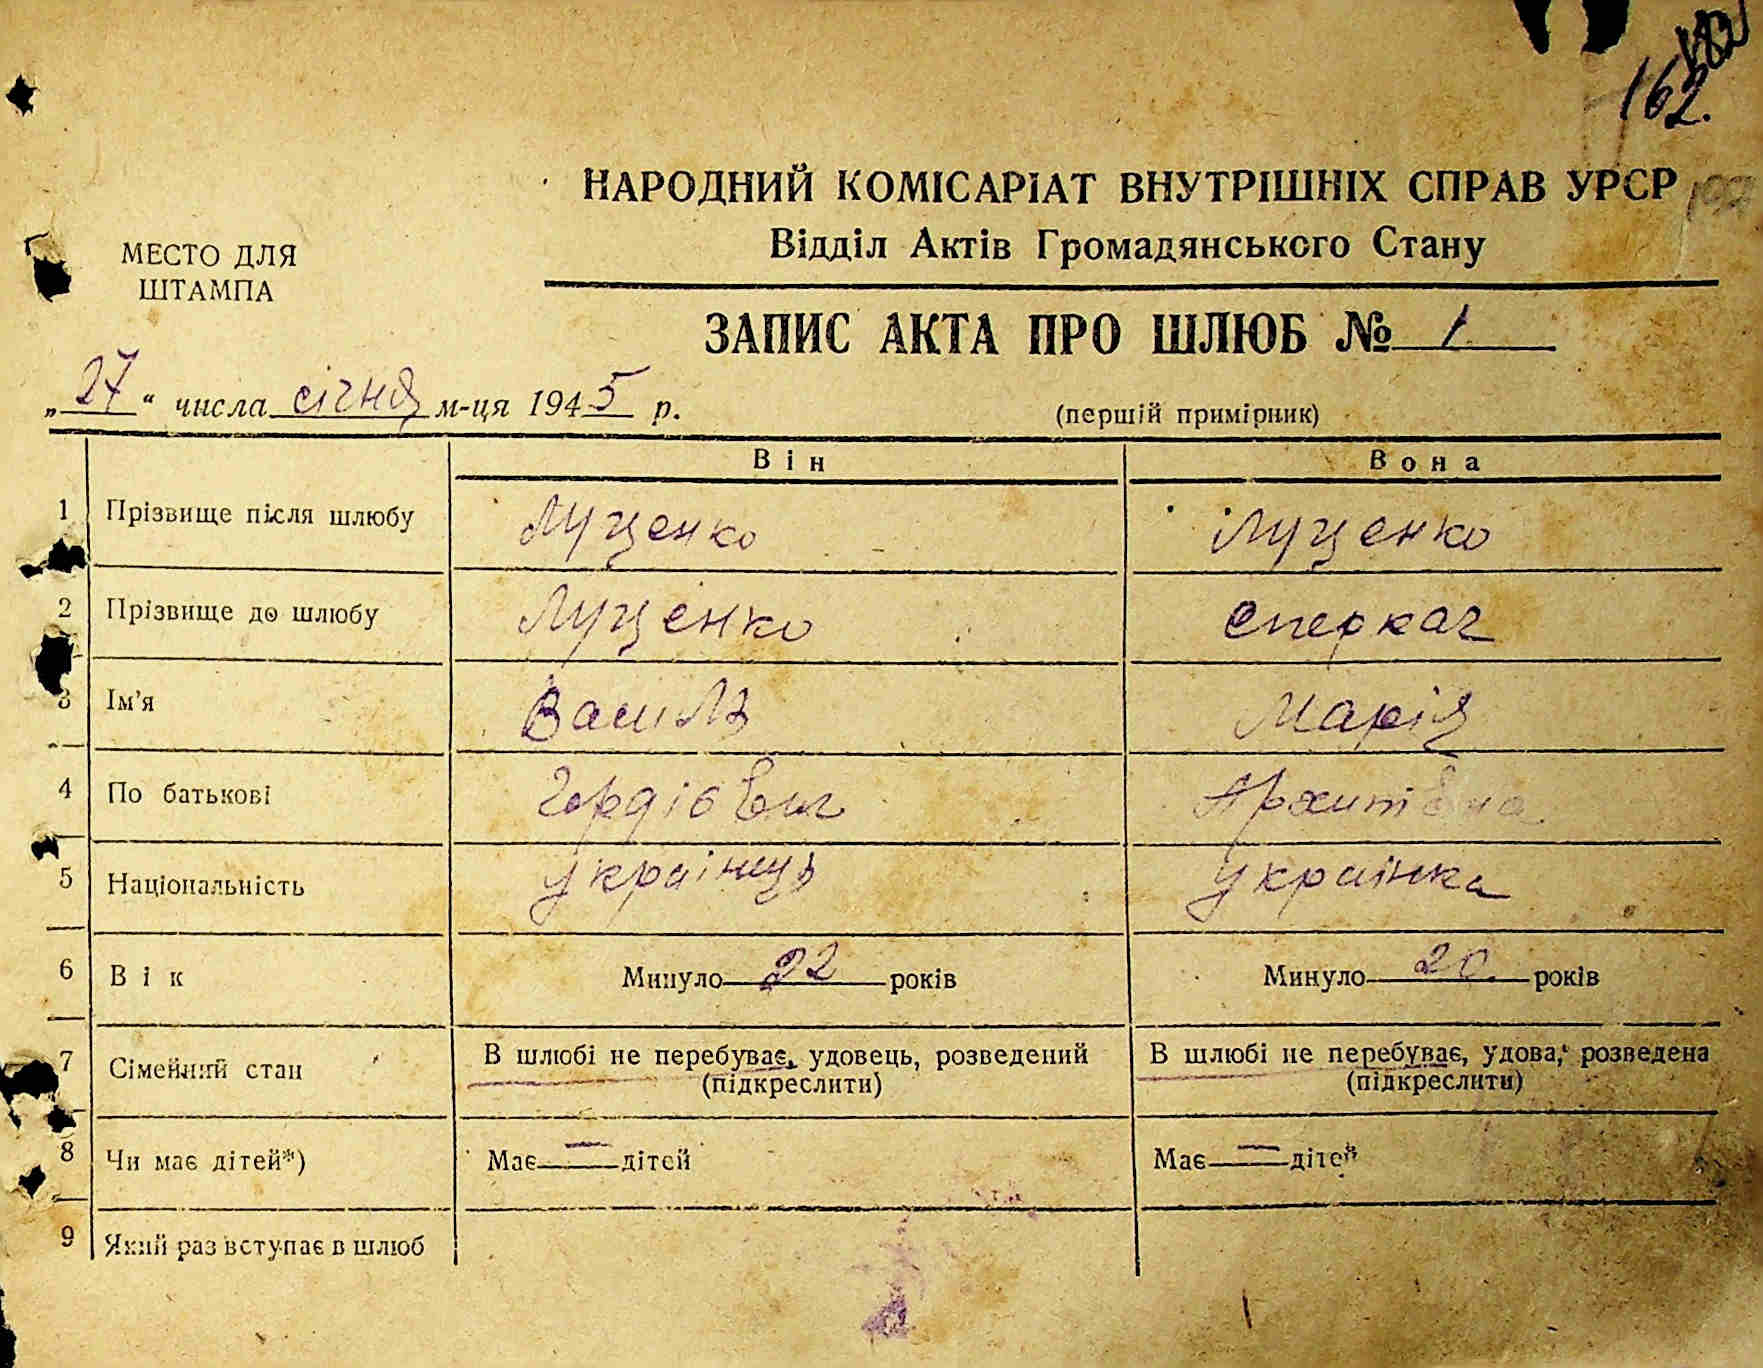 162.
НАРОДНИЙ КОМІСАРІАТ ВНУТРІШНІХ СПРАВ УРСР
Відділ Актів Громадянського Стану
МЕСТО ДЛЯ
ШТАМПА
ЗАПИС АКТА ПРО ШЛЮБ № 1
„27“ числа січня м-ця 1945 р.
(першій примірник)
Він Вона
1 Прізвище після шлюбу Луценко Луценко
2 Прізвище до шлюбу Луценко Сперкач
3 Ім'я Василь Марія
4 По батькові Гордієвич Архипівна
5 Національність українць українка
6 Вік Минуло 22 років Минуло 20 років
7 Сімейний стан В шлюбі не перебуває, удовець, розведений В шлюбі не перебуває, удова, розведена
(підкреслити) (підкреслити)
8 Чи має дітей*) Має — дітей Має — дітей
9 Який раз вступає в шлюб